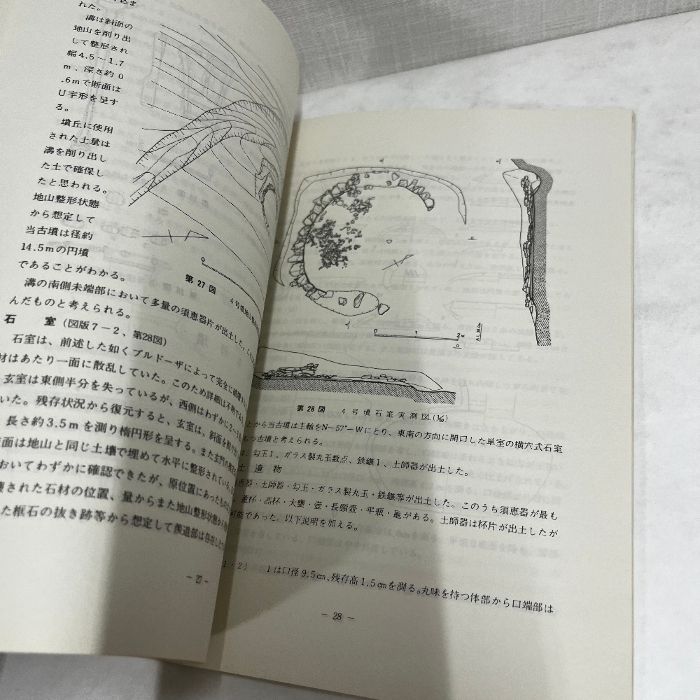 れた。
溝は斜面の
地山を削り出
して整形され
幅4.5～1.7
m、深さ約0
.6mで断面は
U字形を呈す
る。
墳丘に使用
された土量は
溝を削り出し
た土で確保し
たと思われる。
地山整形状態
から想定して
当古墳は径約
14.5mの円墳
であることがわかる。
第27図 4号墳地山
溝の南側未端部において多量の須恵器片が出土した。
んだものと考えられる。
石 室（図版7－2、第28図）
石室は、前述した如くブルドーザによって完全に
材はあたり一面に散乱していた。このため詳細は不明で
玄室は東側半分を失っているが、西側はわずかに
いた。残存状況から復元すると、玄室は、斜面を
長さ約3.5mを測り楕円形を呈する。また玄門
面は地山と同じ土壌で埋めて水平に整形されている。
おいてわずかに確認できたが、原位置にあった
壊された石材の位置、量からまた地山整形状態か
た框石の抜き跡等から想定して羨道部は存在し
－27－
第28図 4号墳石室実測図
とから当古墳は主軸をN－57°－Wにとり、東南の方向に開口した単室の横穴式石室
もつ古墳と考えられる。
は、勾玉1、ガラス製丸玉数点、鉄鏃1、土師器が出土した。
土 遺 物
恵器・土師器・勾玉・ガラス製丸玉・鉄鏃等が出土した。このうち須恵器が最も
・蓋杯・高杯・大甕・壺・長頸壺・平瓶・𤭯がある。土師器は杯片が出土したが
可能であった。以下説明を加える。
1・2） 1は口径9.5cm、残存高1.5cmを測る。丸味を持つ体部から口端部は
－28－